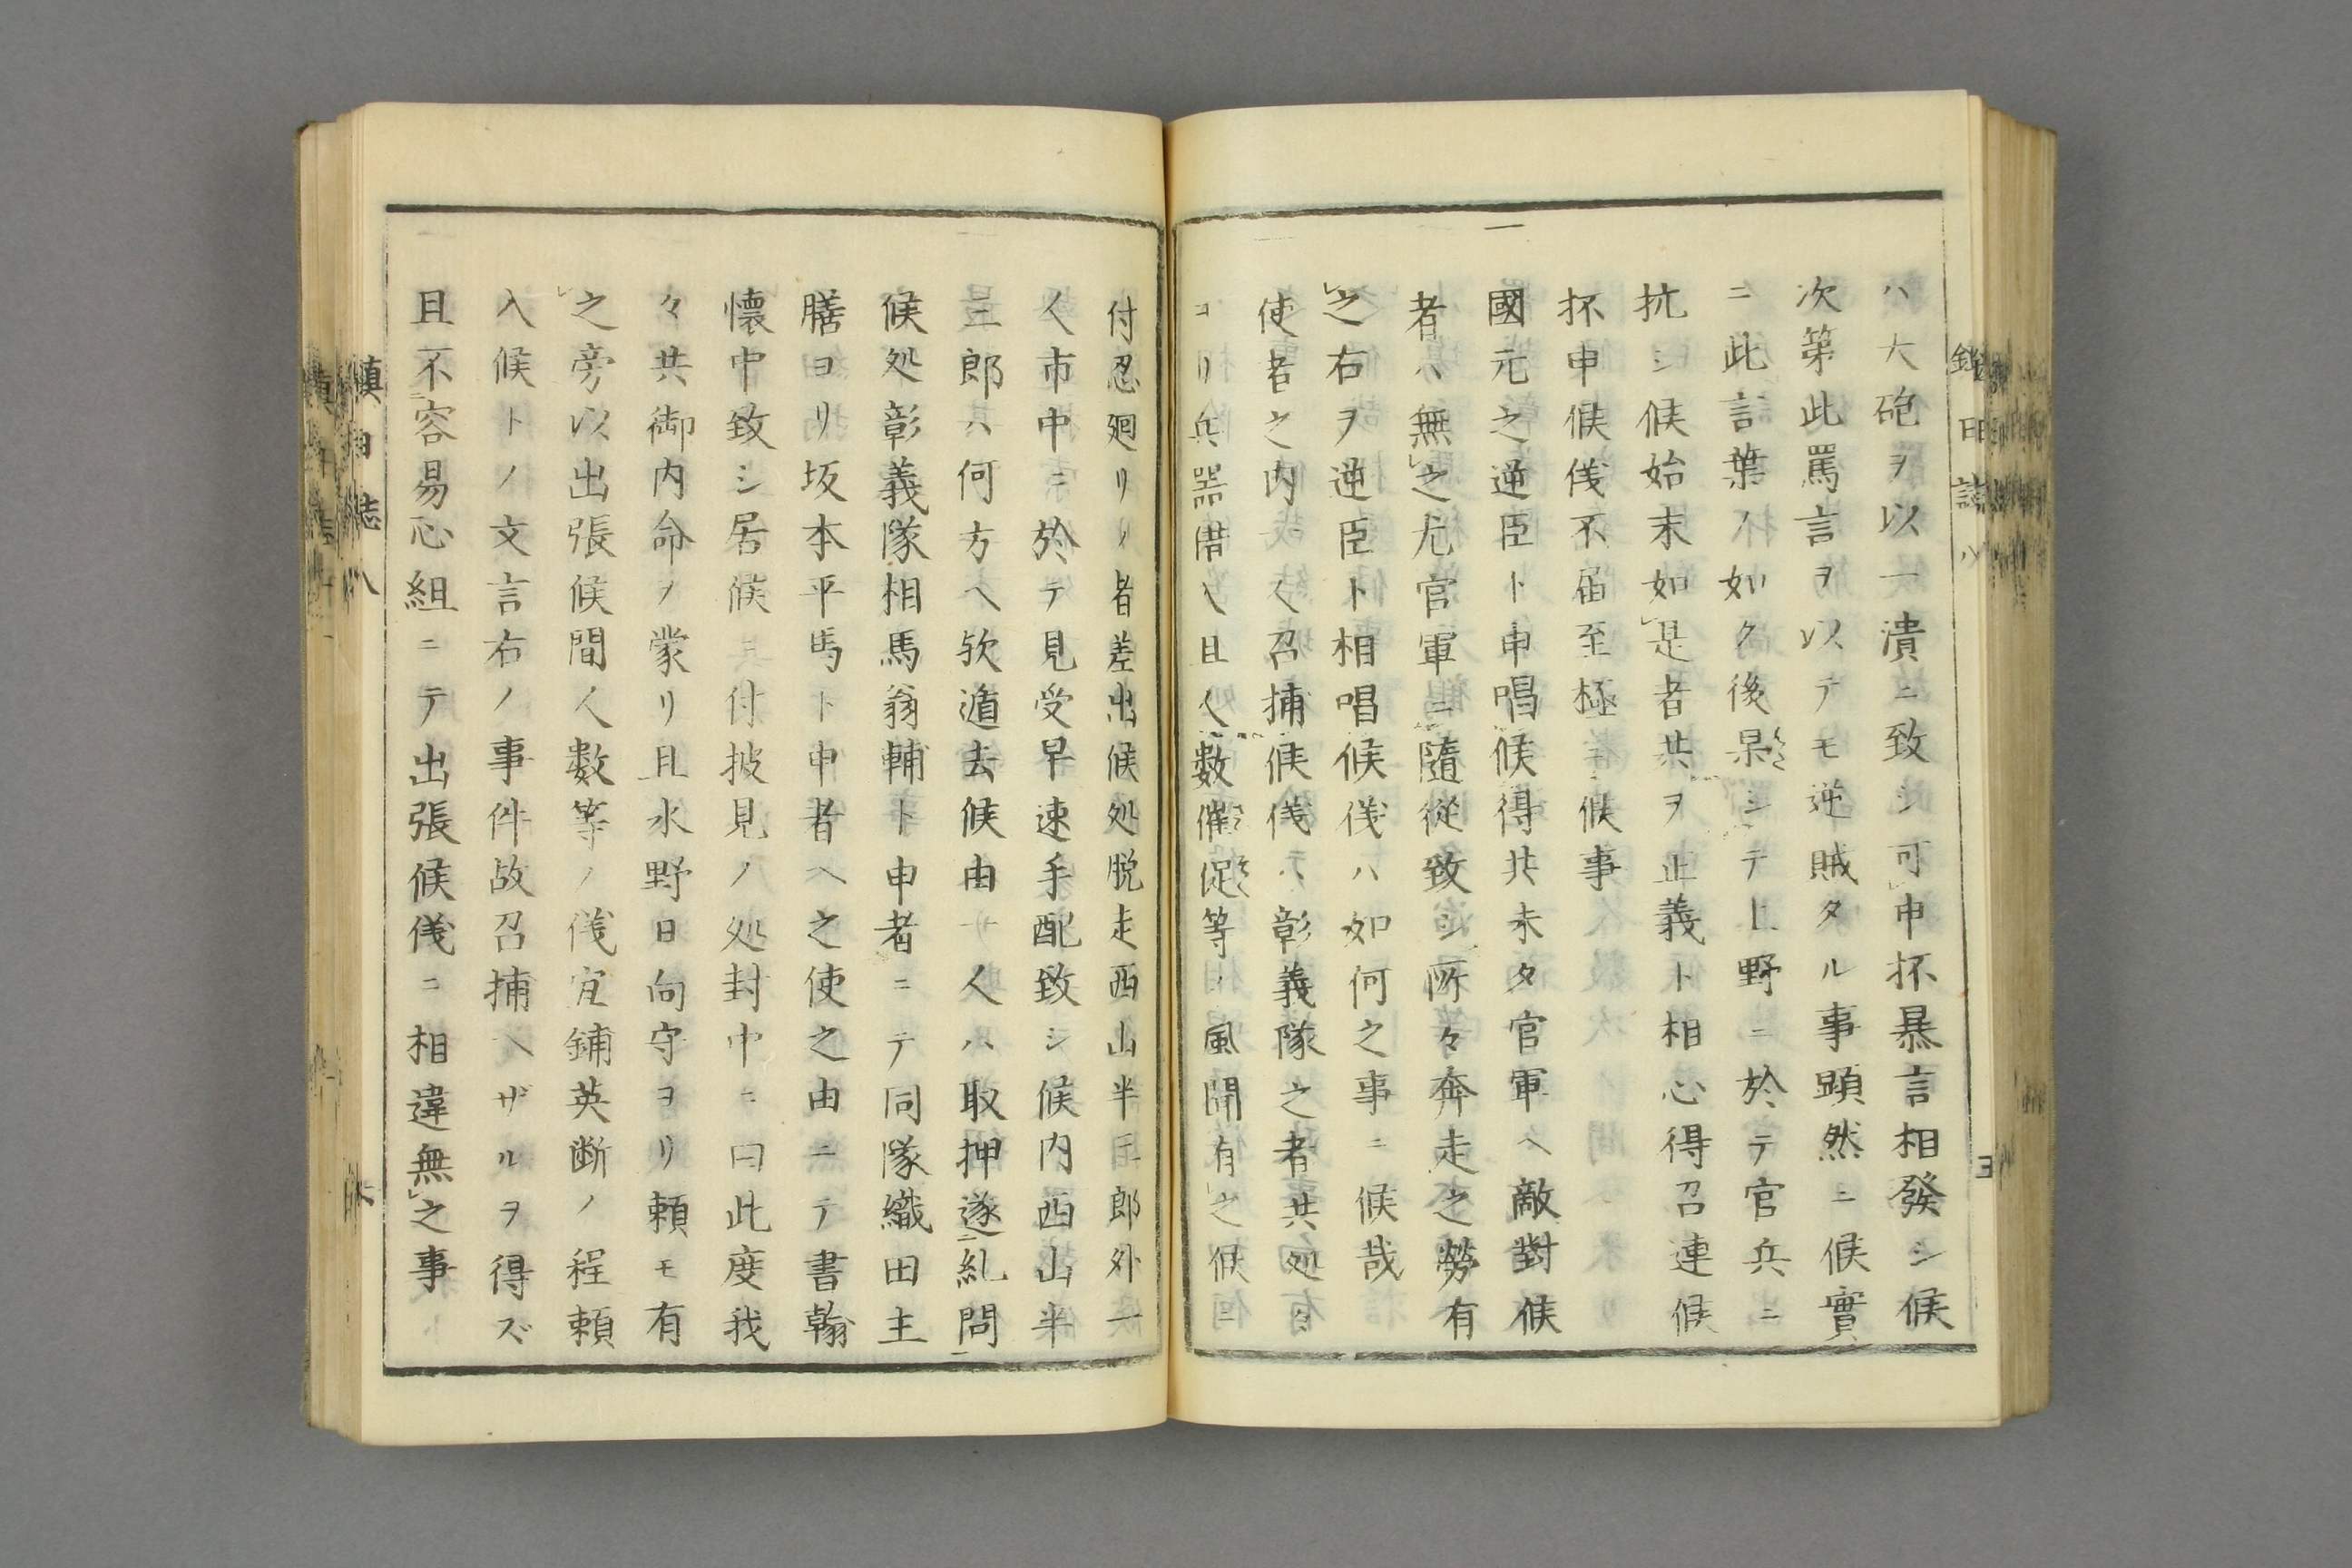 鎮日誌八
ハ大砲ヲ以一潰ニ致シ可申抔暴言相發シ候
次第此罵言ヲ以テモ逆賊タル事顕然ニ候實
ニ此言葉ノ如ク後果シテ上野ニ於テ官兵ニ
抗シ候始末如是者共ヲ正義ト相心得召連候
抔申候儀不届至極ニ候事
一國元之逆臣ト申唱候得共未タ官軍ヘ敵對候
者ハ無之尤官軍ニ隨從致シ所々奔走之勞有
之右ヲ逆臣ト相唱候儀ハ如何之事ニ候哉
使者之内ヘ召捕候儀ハ彰義隊之者共処々
ヨリ兵器借入且人数催促等ノ風聞有之候ニ
付忍廻リノ者差出候処脱走西山半三郎外一
人市中ニ於テ見受早速手配致シ候内西山半
三郎ハ何方ヘ欤遁去候由一人ハ取押遂糺問
候処彰義隊相馬翁輔ト申者ニテ同隊織田主
膳ヨリ坂本平馬ト申者ヘ之使之由ニテ書翰
懐中致シ居候ニ付披見ノ処封中ニ曰此度我
々共御内命ヲ蒙リ且水野日向守ヨリ頼モ有
之旁以出張候間人数等ノ儀宜鋪英断ノ程頼
入候トノ文言右ノ事件故召捕ヘザルヲ得ズ
且不容易心組ニテ出張候儀ニ相違無之事
鎮日誌八